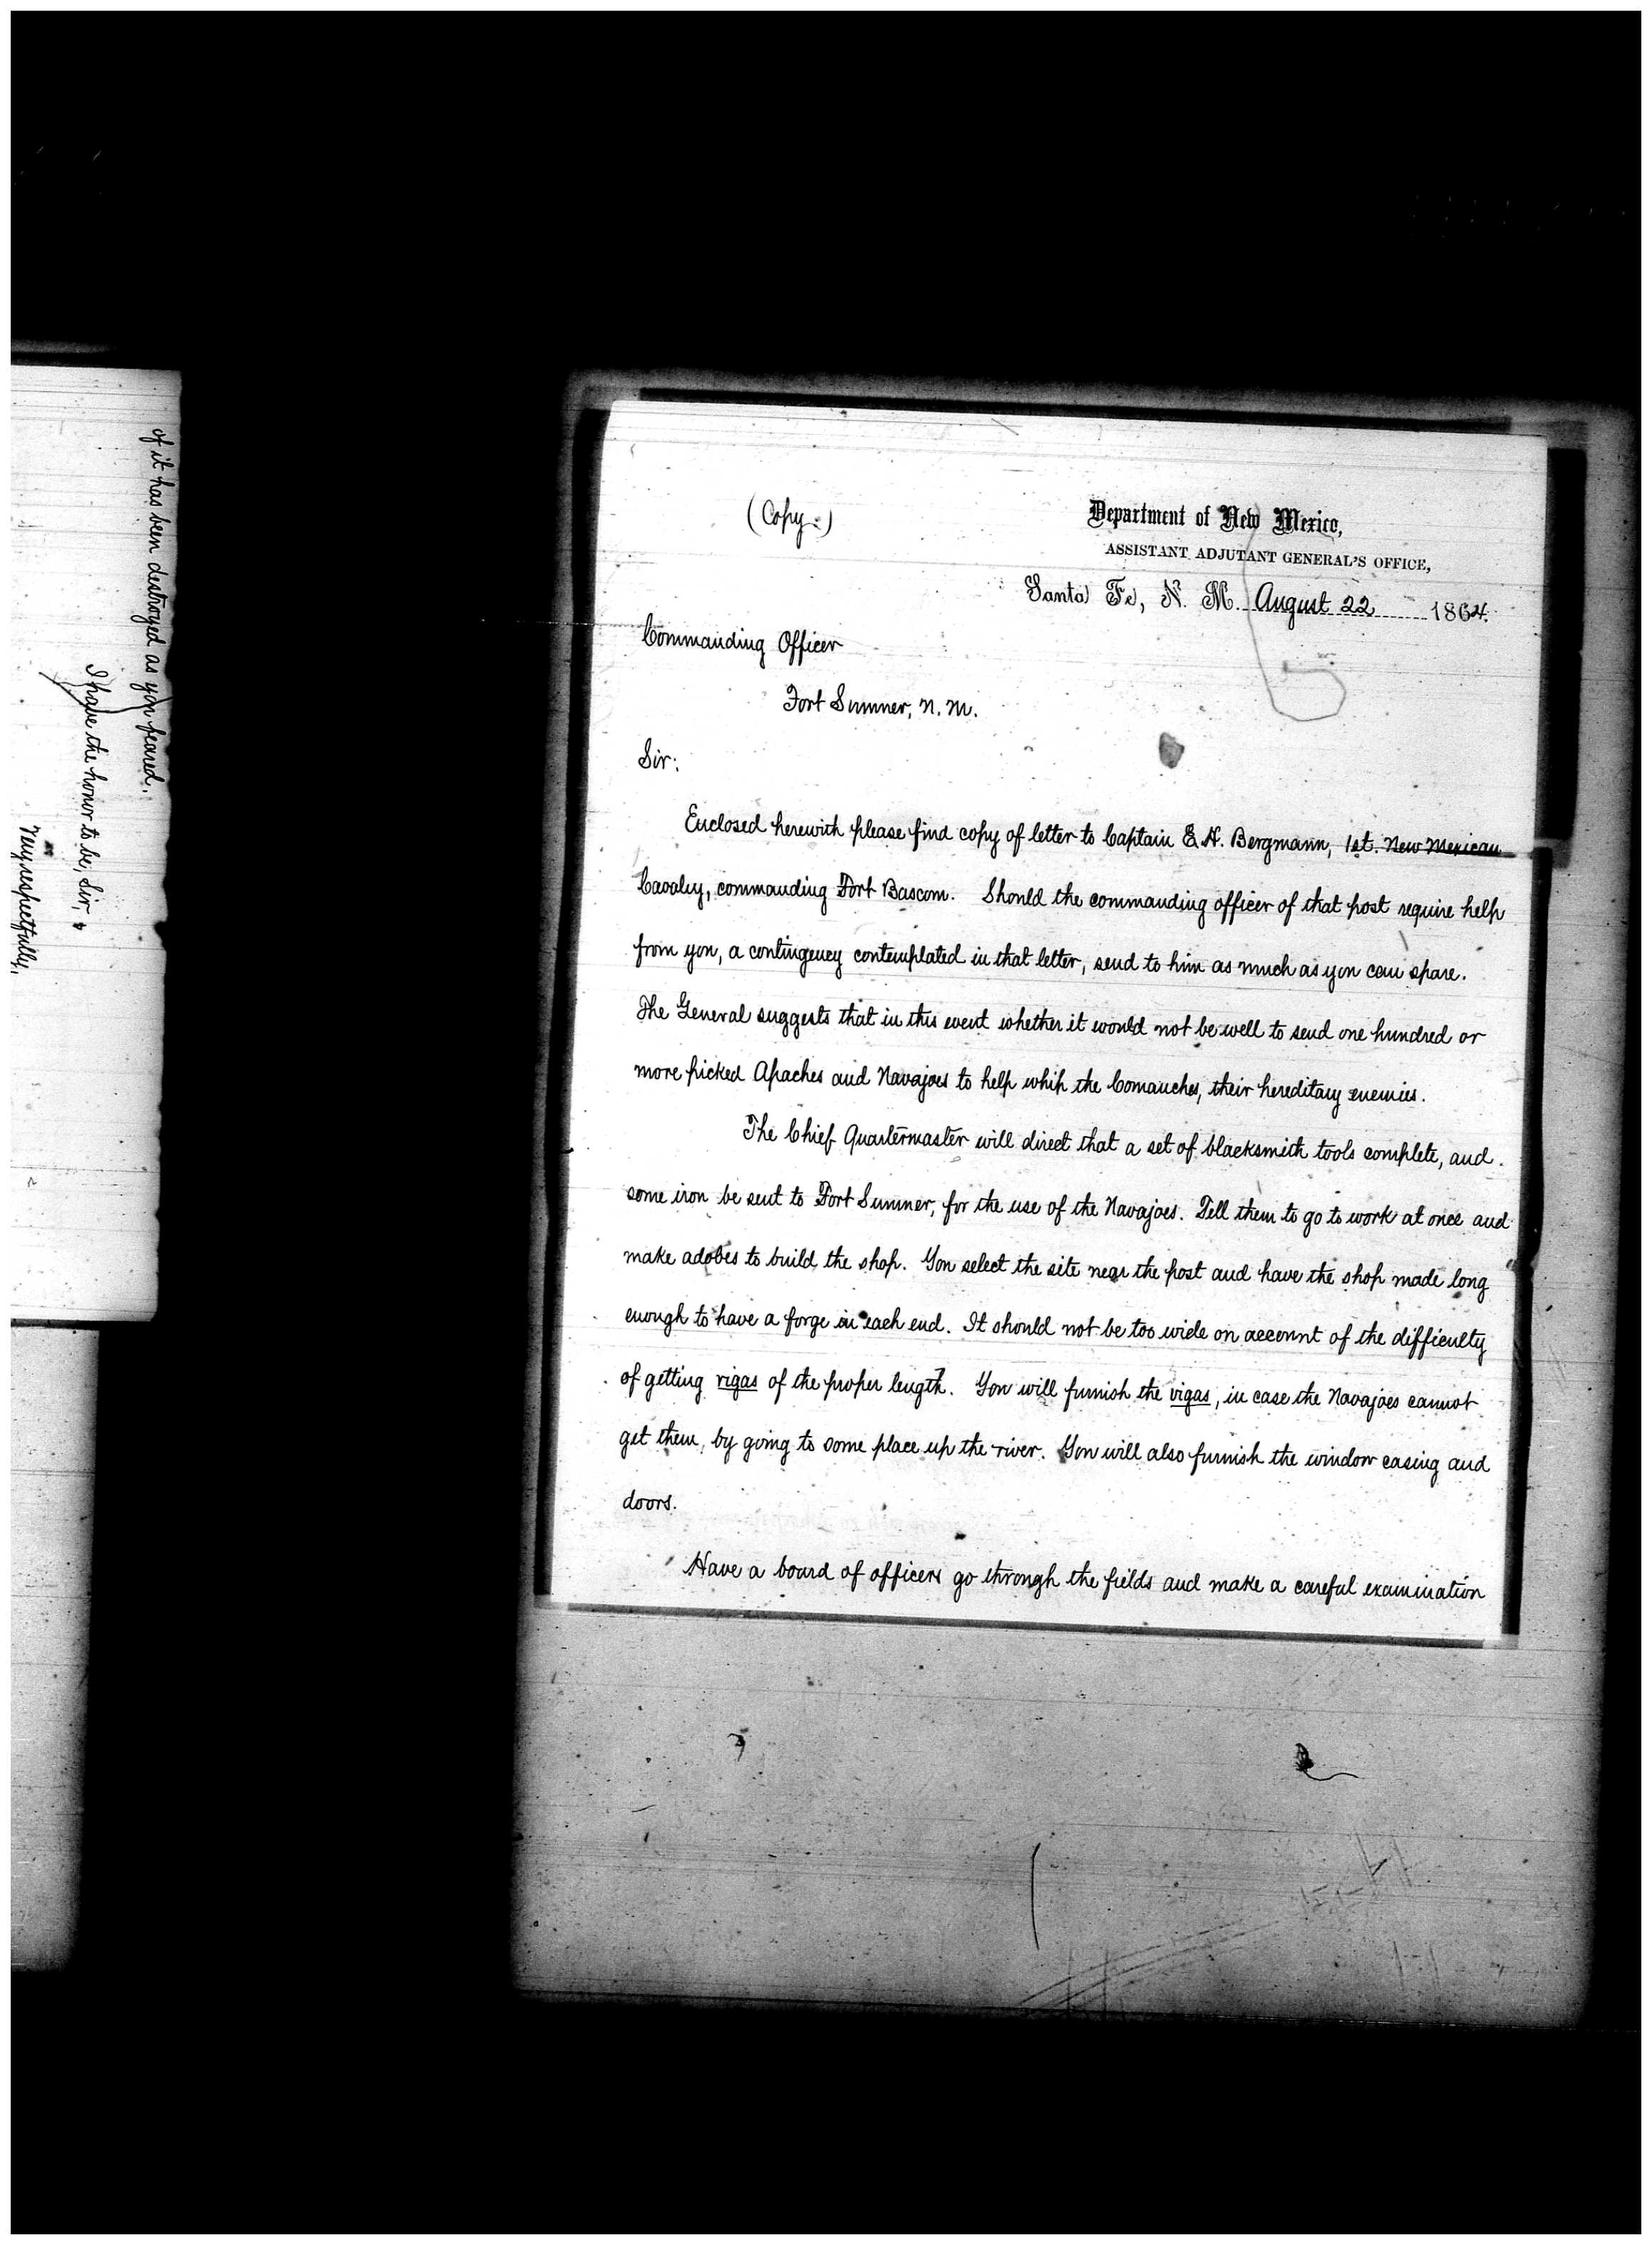 (Copy.)
Department of New Mexico,
ASSISTANT ADJUTANT GENERAL'S OFFICE,
Santa Fe, N. M. August 22 1864.
Commanding Officer
Fort Sumner, N. M.
Sir:
Enclosed herewith please find copy of letter to Captain E. H. Bergmann, 1st. New Mexican
Cavalry, commanding Fort Bascom. Should the commanding officer of that post require help
from you, a contingency contemplated in that letter, send to him as much as you can spare.
The General suggests that in this event whether it would not be well to send one hundred or
more picked Apaches and Navajoes to help whip the Comanches, their hereditary enemies.
The Chief Quartermaster will direct that a set of blacksmith tools complete, and
some iron be sent to Fort Sumner, for the use of the Navajoes. Tell them to go to work at once and
make adobes to build the shop. You select the site near the post and have the shop made long
enough to have a forge in each end. It should not be too wide on account of the difficulty
of getting vigas of the proper length. You will furnish the vigas, in case the Navajoes cannot
get them, by going to some place up the river. You will also furnish the window casing and
doors.
Have a board of officers go through the fields and make a careful examination
of it has been destroyed as you feared.
I have the honor to be, Sir,
Very respectfully,